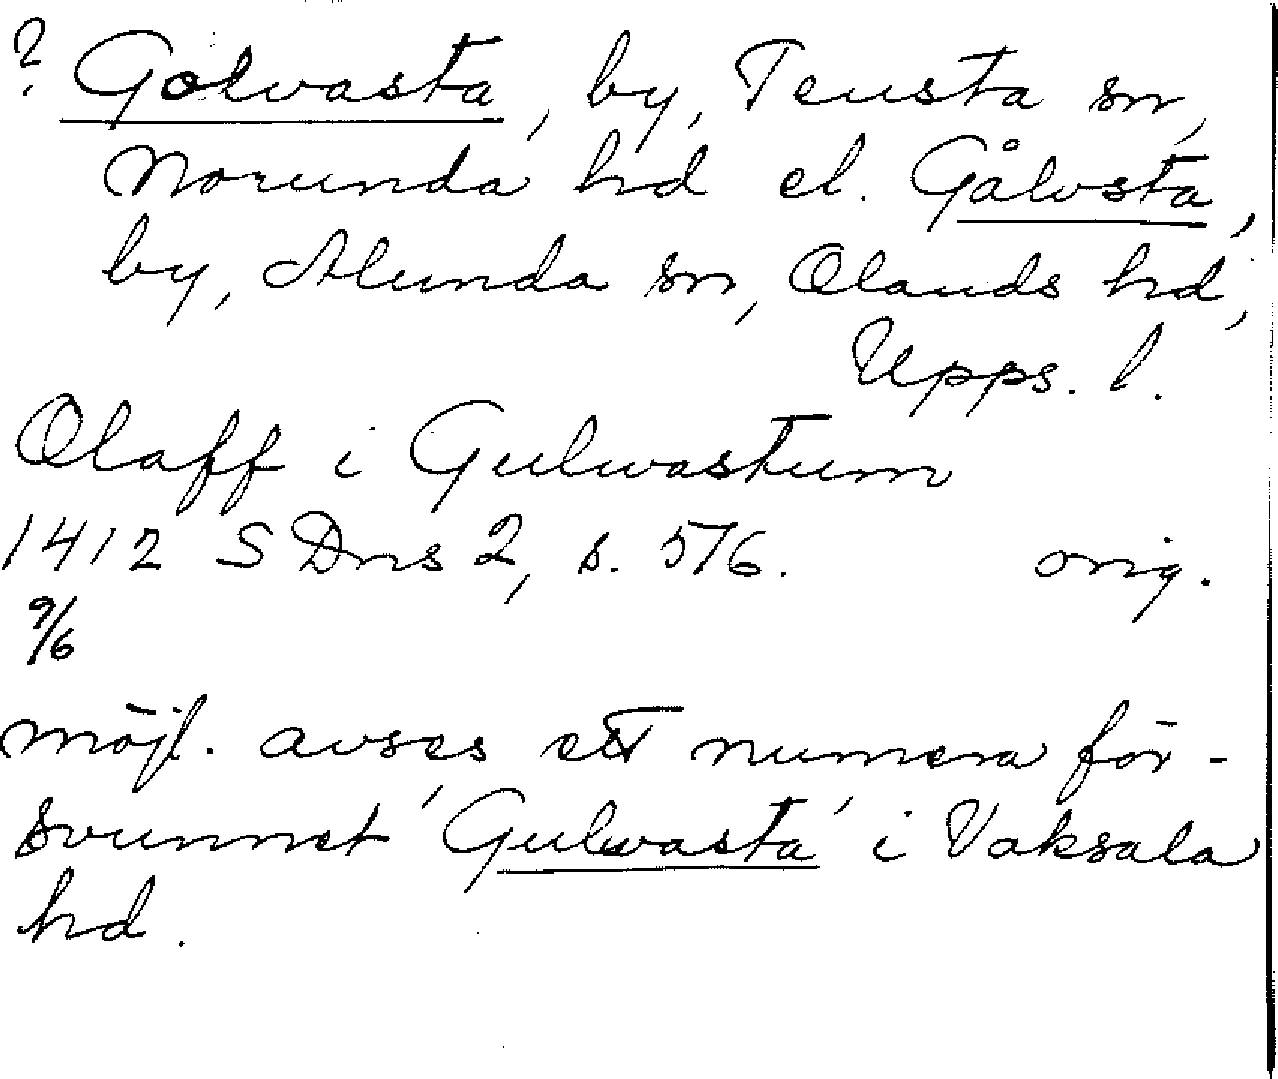 ? Golvasta, by, Tensta sn,
Norunda hd el. Gålvsta,
by, Alunda sn, Olands hd,
Upps. l.
Olaff i Gulwastum
1412 SDns 2, s. 576. orig.
9/6
möjl. avses ett numera för-
svunnet 'Gulwasta' i Vaksala
hd.